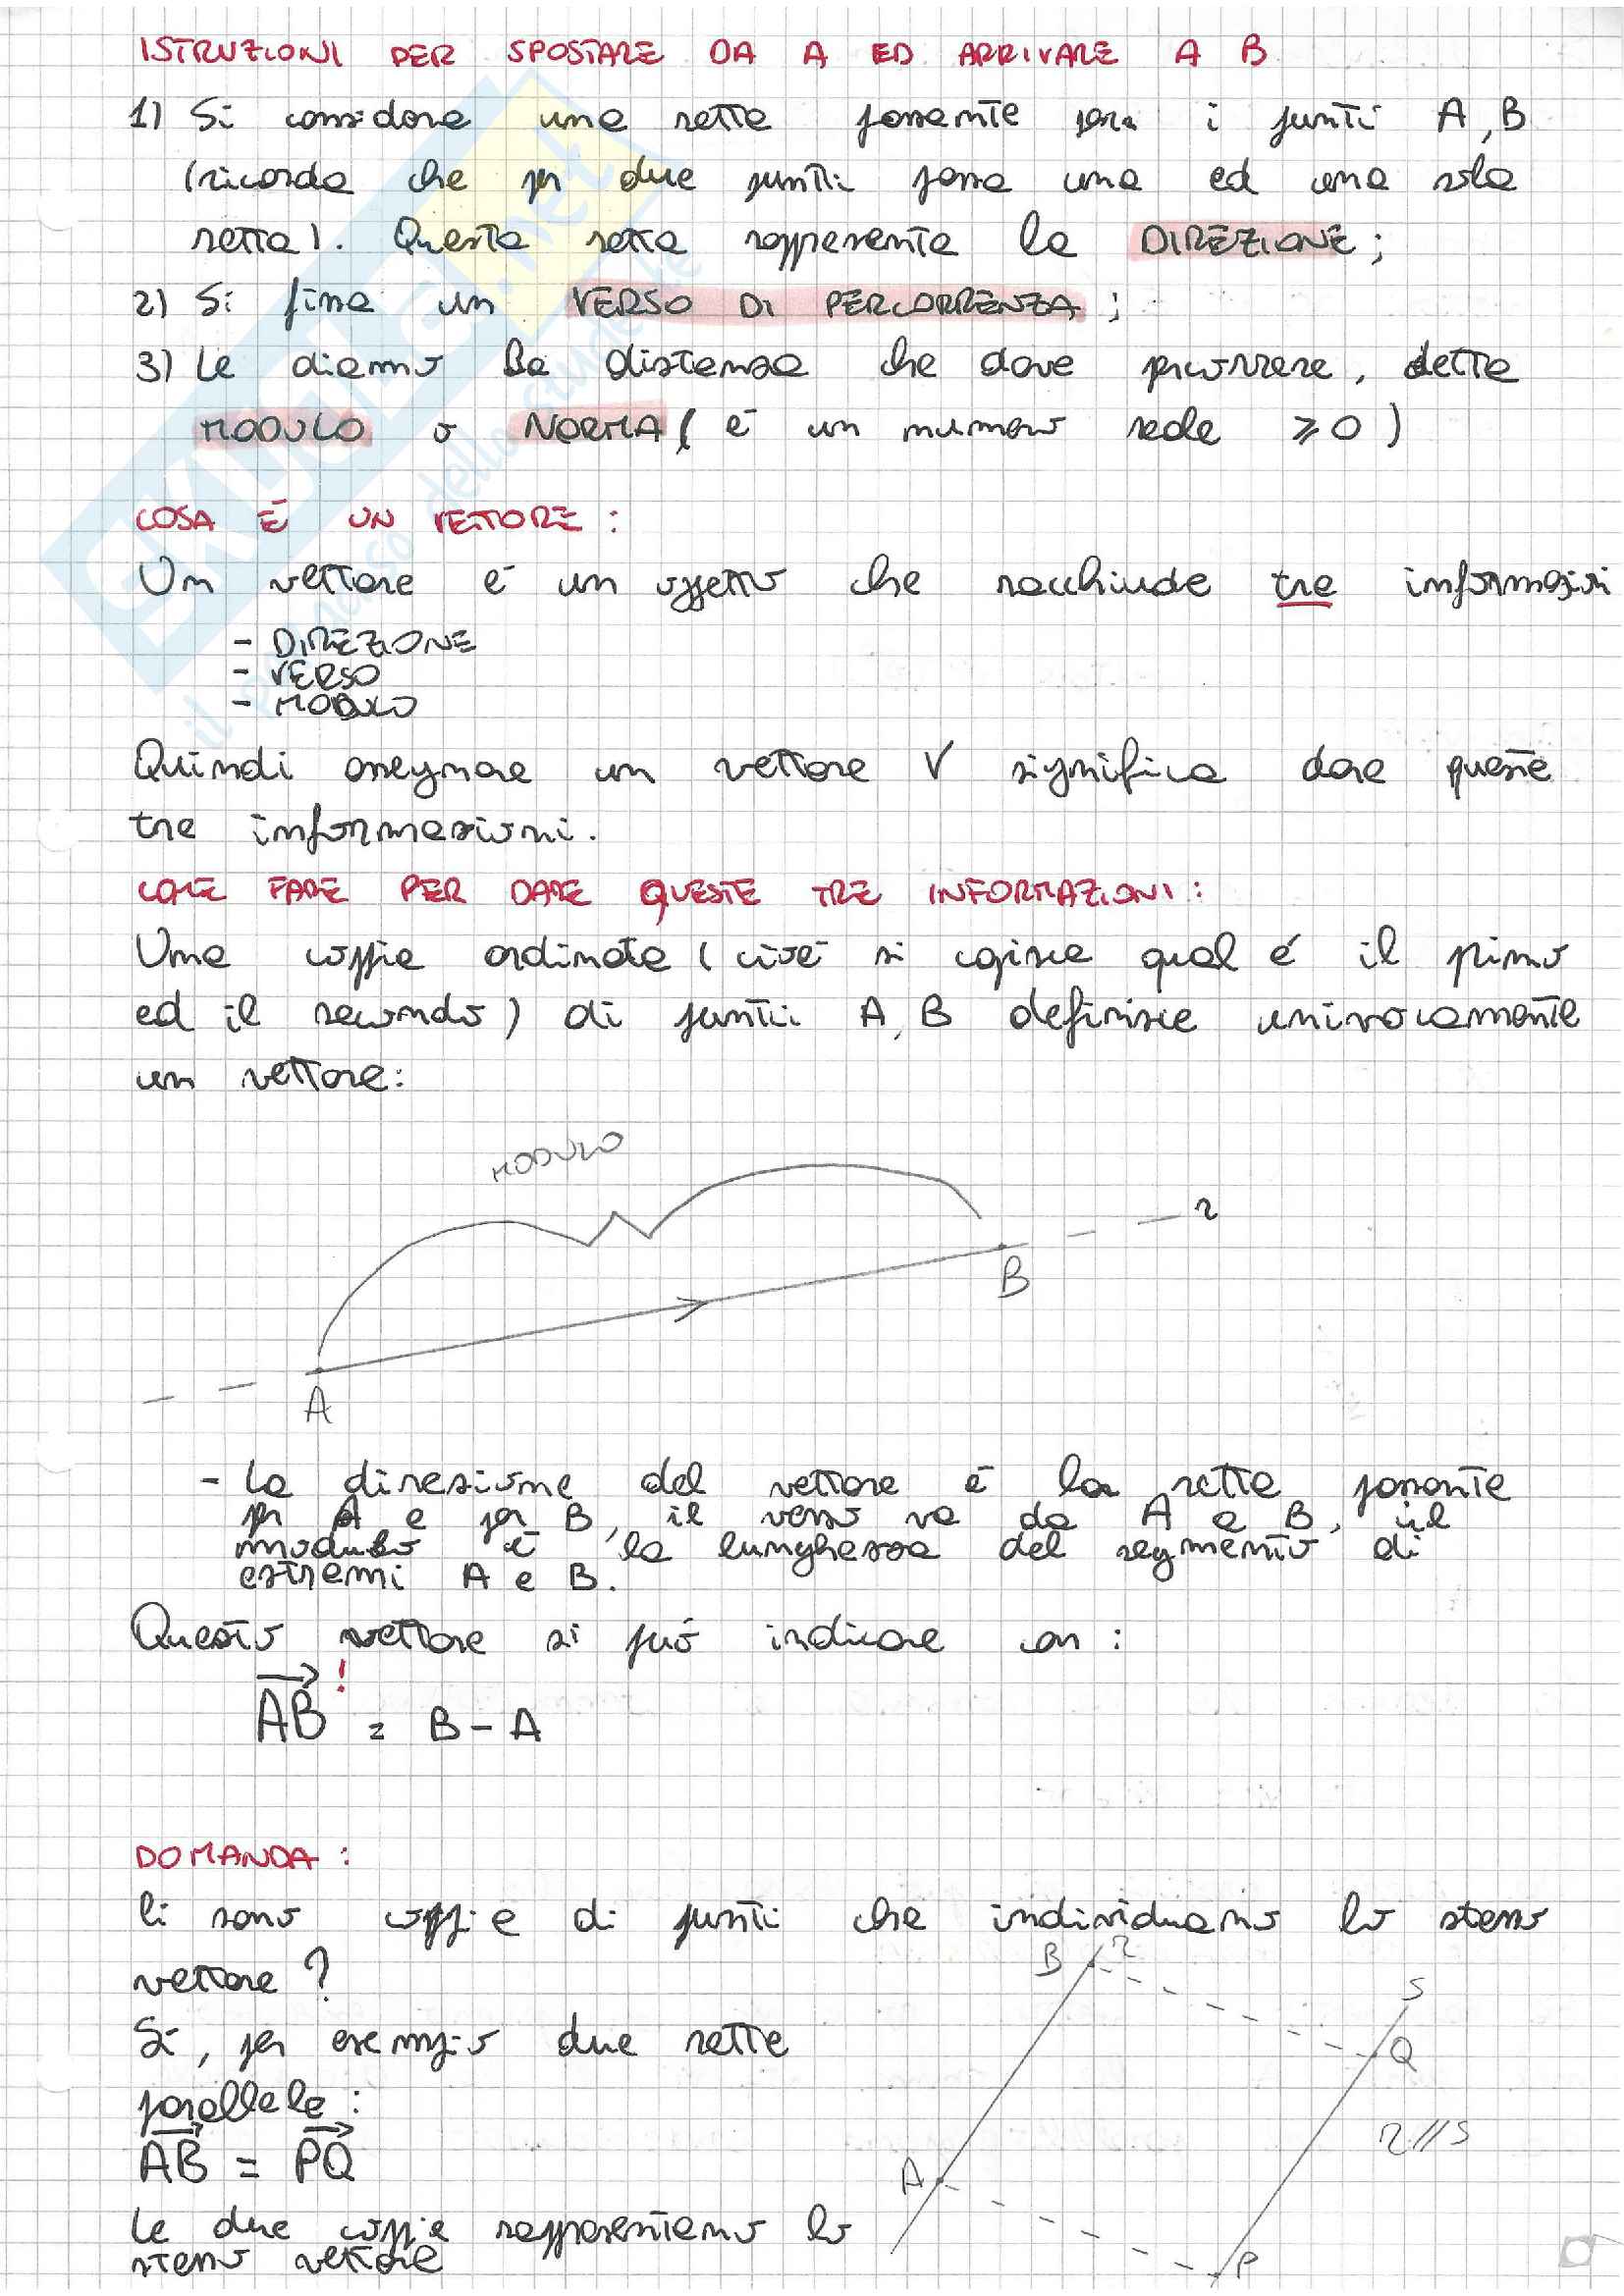 ISTRUZIONI PER SPOSTARE DA A ED ARRIVARE A B
1) Si considera una retta passante per i punti A, B
(ricorda che per due punti passa una ed una sola
retta). Questa retta rappresenta la DIREZIONE;
2) Si fissa un VERSO DI PERCORRENZA;
3) Le diamo la distanza che deve percorrere, detta
MODULO o NORMA (è un numero reale ⩾0)
COSA È UN VETTORE:
Un vettore è un oggetto che racchiude tre informazioni
- DIREZIONE
- VERSO
- MODULO
Quindi assegnare un vettore V significa dare queste
tre informazioni.
COME FARE PER DARE QUESTE TRE INFORMAZIONI:
Una coppia ordinata (cioè si capisce qual è il primo
ed il secondo) di punti A, B definisce univocamente
un vettore:
MODULO
r
B
A
- La direzione del vettore è la retta passante
per A e per B, il verso va da A a B, il
modulo è la lunghezza del segmento di
estremi A e B.
Questo vettore si può indicare con:
AB! = B - A
DOMANDA:
Ci sono coppie di punti che individuano lo stesso
vettore?
B r
S
Sì, per esempio due rette
Q
parallele:
r//s
AB = PQ
A
Le due coppie rappresentano lo
stesso vettore
P
SKUOLA.net
il paradiso dello studente